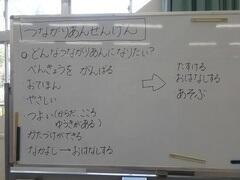 つながりあんせんけん
○どんなつながりあんになりたい?
べんきょうを がんばる
おてほん
やさしい
つよい(からだ、こころ
ゆうきがある)
かたづけができる
なかよし→おはなしする
⇨
たすける
おはなしする
あそぶ